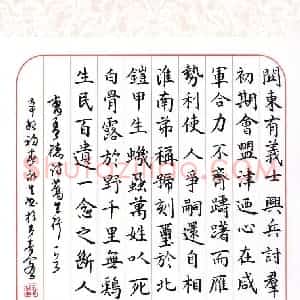 關東有義士興兵討群
初期會盟津迺心在咸
軍合力不齊躊躇而雁
勢利使人爭嗣還自相
淮南弟稱號刻璽於北
鎧甲生蟣蝨萬姓以死
白骨露於野千里無雞
生民百遺一念之斷人
曹孟德詩蒿里行